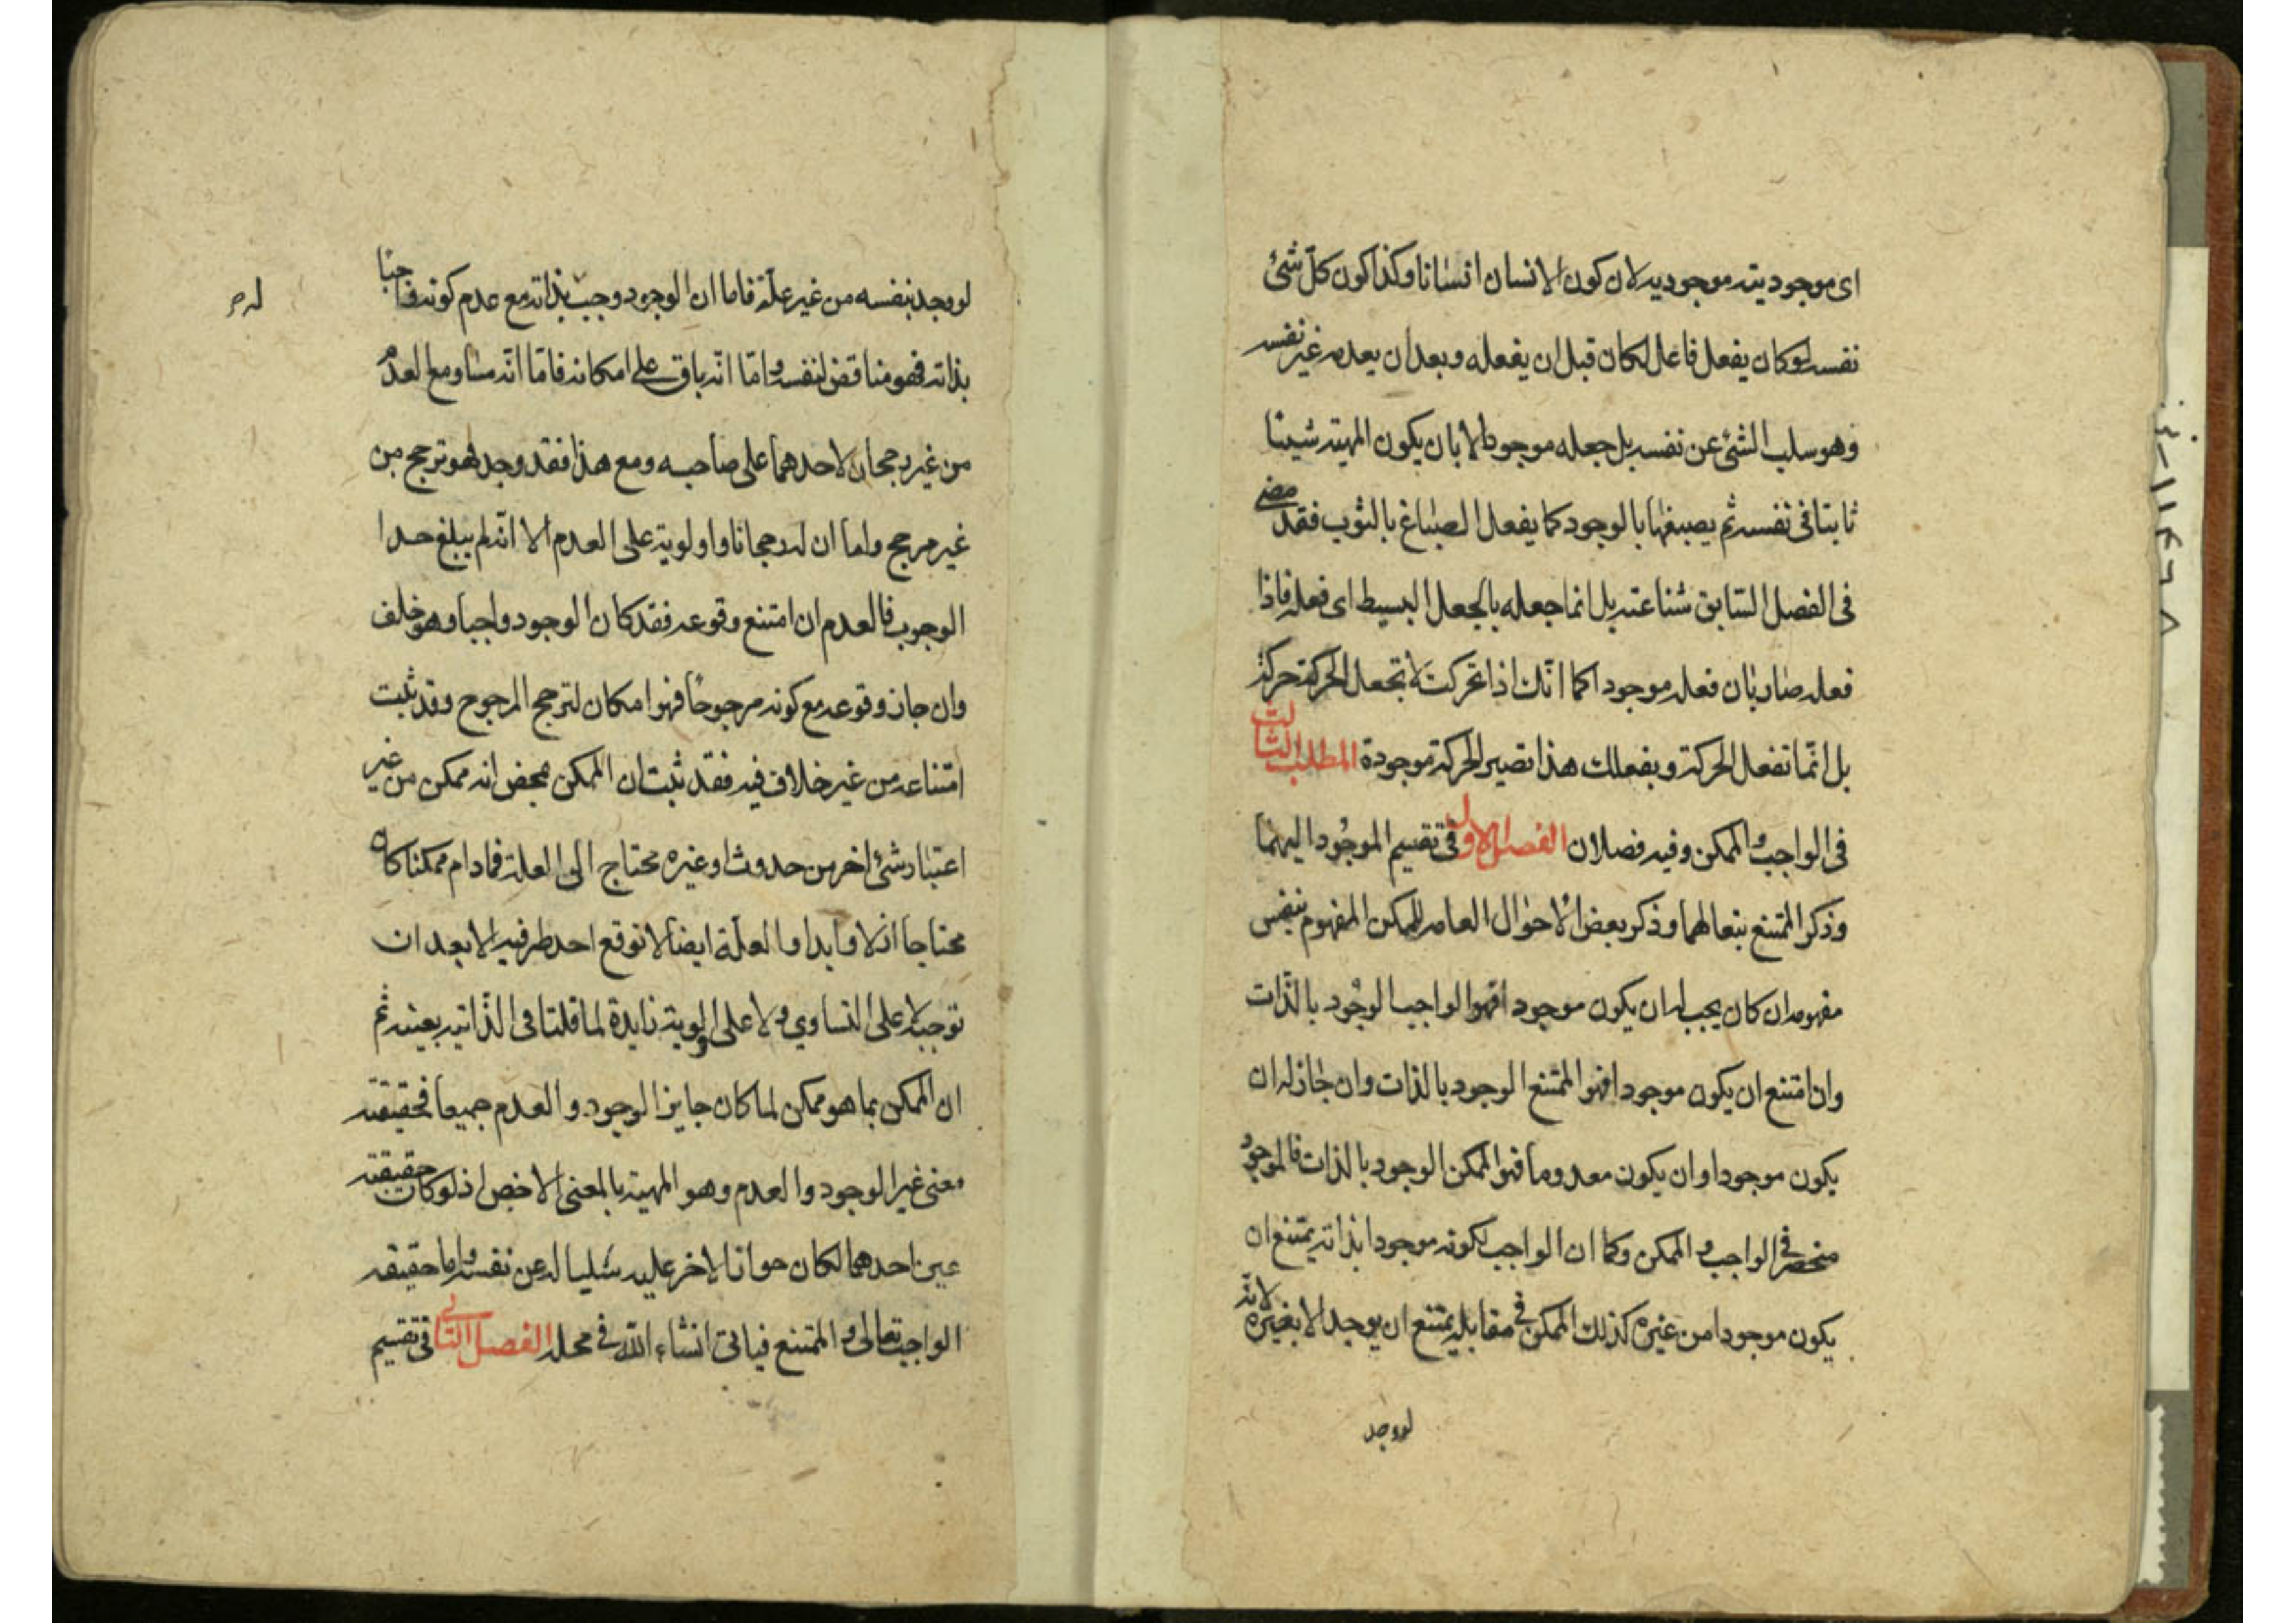 اى موجوديته موجوديه لان كون الانسان انسانا وكذا كون كلّ شئ
نفسه لو كان يفعل فاعل لكان قبل ان يفعله وبعد ان يعدمه غير نفسه
وهو سلب الشئ عن نفسه بل جعله موجودا لا بان يكون المهية شيئا
ثابتا فى نفسه ثم يصبغها بالوجود كما يفعل الصباغ بالثوب فقد مضى
فى الفصل السّابق شناعته بل انما جعله بالجعل البسيط اى فعله فاذا
فعله صار بان فعله موجودا كما انّك اذا تحركت لا تجعل الحركة حركة
بل انّما تفعل الحركة و بفعلك هذا تصير الحركة موجودة المطلب الثالث
فى الواجب و الممكن وفيه فصلان الفصل الاول فى تقسيم الموجود اليهما
وذكر الممتنع بتعالهما وذكر بعض الاحوال العامه للممكن المفهوم بنفس
مفهومه ان كان يجب له ان يكون موجودا فهوا لواجب الوجود بالذّات
وان امتنع ان يكون موجودا فهوا لممتنع الوجود بالذات وان جاز له ان
يكون موجودا وان يكون معدوما فهوا لممكن الوجود بالذات فالموجود
منحصر فى الواجب و الممكن وكما ان الواجب لكونه موجودا بذاته يمتنع ان
يكون موجودا من غيره كذلك الممكن فى مقابله يمتنع ان يوجد الا بغيره لانّه
لو وجد
لو وجد بنفسه من غير علّة فاما ان الوجود وجب بذاته مع عدم كونه واجبا
له م
بذاته فهو مناقض لنفسه و امّا انّه باق على امكانه فامّا انّه مساو مع العدم
من غير رجحان لاحدهما على صاحبه ومع هذا فقد وجد فهو ترجح من
غير مرجح واما ان له رجحانا واولوية على العدم الا انّه لم يبلغ حدا
الوجوب فالعدم ان امتنع وقوعه فقد كان الوجود واجبا وهو خلف
وان جاز وقوعه مع كونه مرجوحا فهوا مكان لترجح المرجوح وقد ثبت
امتناعه من غير خلاف فيه فقد ثبت ان الممكن بمحض انه ممكن من غير
اعتبار شئ اخر من حدوث او غيره محتاج الى العلة فما دام ممكنا كان
محتاجا ازلا وابدا والعلّة ايضا لا توقع احد طرفيه الا بعد ان
توجبه لا على التساوي و لا على اولوية زايدة لما قلنا فى الذّاتيه بعينه ثم
ان الممكن بما هو ممكن لما كان جايز الوجود و العدم جميعا فحقيقته
معنى غير الوجود والعدم وهو المهية بالمعنى الاخص اذ لو كان حقيقته
عين احدهما لكان جواز الاخر عليه سلبا له عن نفسه و اما حقيقه
الواجب تعالى و الممتنع فياتى انشاء اللّه فى محله الفصل الثانى فى تقسيم